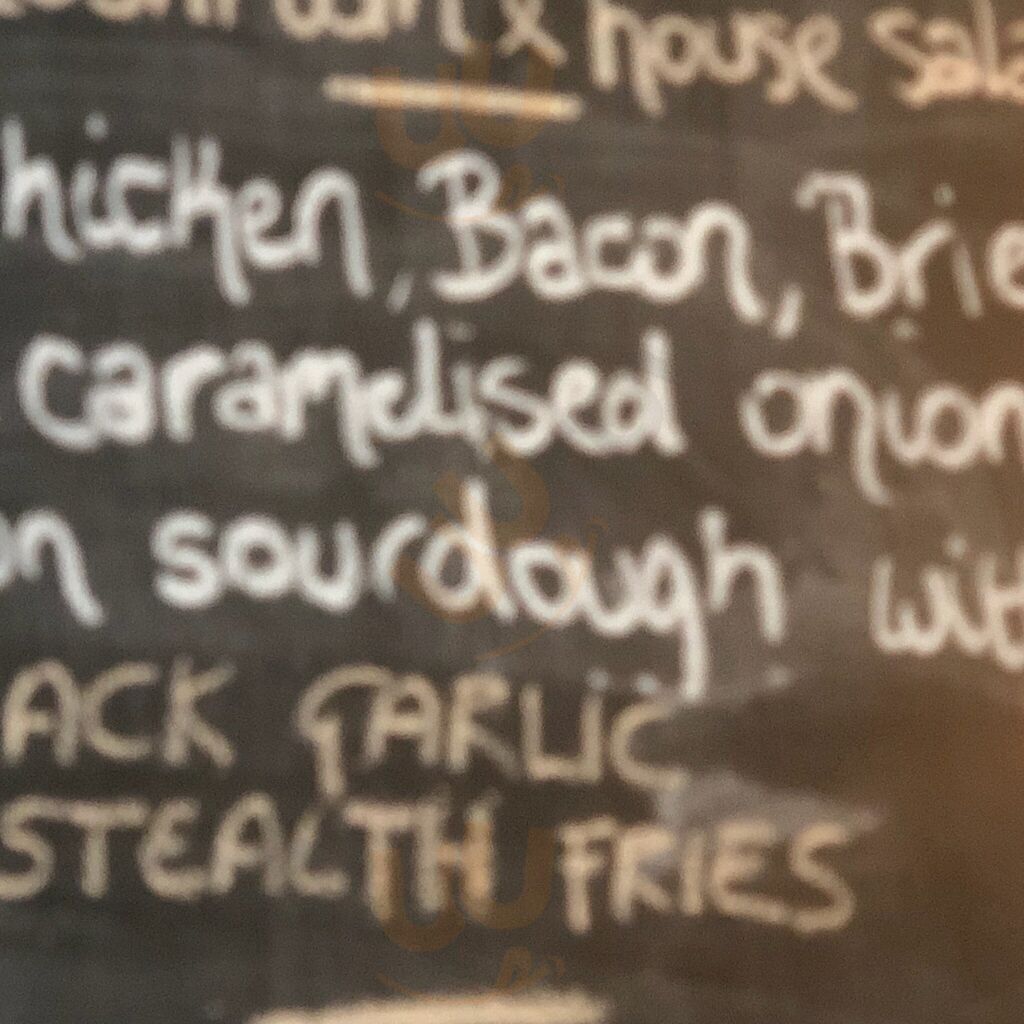 & house sala
hicken, Bacon, Brie
caramelised onion
on sourdough wit
ACK GARLIC
STEALTH FRIES